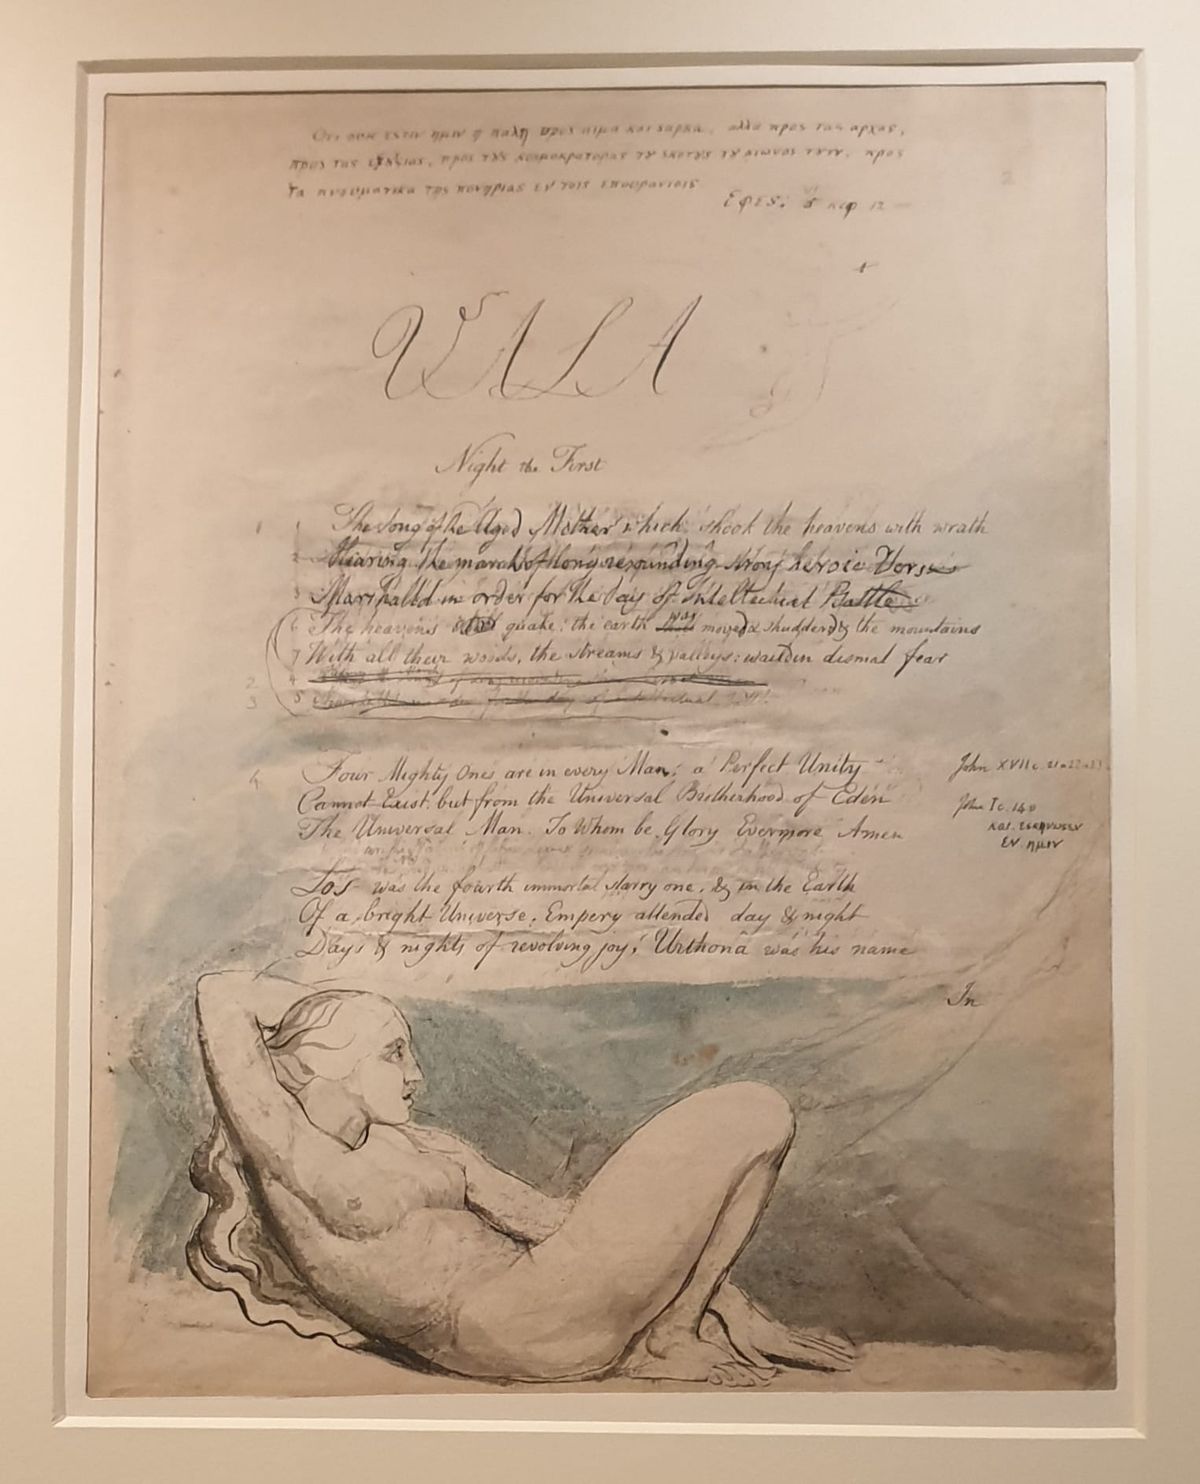 Οτι ουκ εστιν ημιν η παλη προς αιμα και σαρκα, αλλα προς τας αρχας,
προς τας εξȣσιας, προς τȣς κοσμοκρατορας τȣ σκοτȣς τȣ αιωνος τȣτȣ, προς
τα πνευματικα της πονηριας εν τοις επουρανιοις
Εφες: 5 κεφ 12
VALA
Night the First
1 1 The Song of the Aged Mother which shook the heavens with wrath
2 Hearing the march of long resounding strong heroic Verse
3 Marshalld in order for the day of Intellectual Battle
6 The heavens quake: the earth was moved & shudderd & the mountains
7 With all their woods, the streams & valleys: waild in dismal fear
2 4 of
3 5 of Intellectual
4 Four Mighty Ones are in every Man; a Perfect Unity John XVII c. 21 & 22 & 23
Cannot Exist. but from the Universal Brotherhood of Eden John I c. 14 v
The Universal Man. To Whom be Glory Evermore Amen και. εσκηνωσεν
εν ημιν
Los was the fourth immortal starry one, & in the Earth
Of a bright Universe, Empery attended day & night
Days & nights of revolving joy, Urthona was his name
In